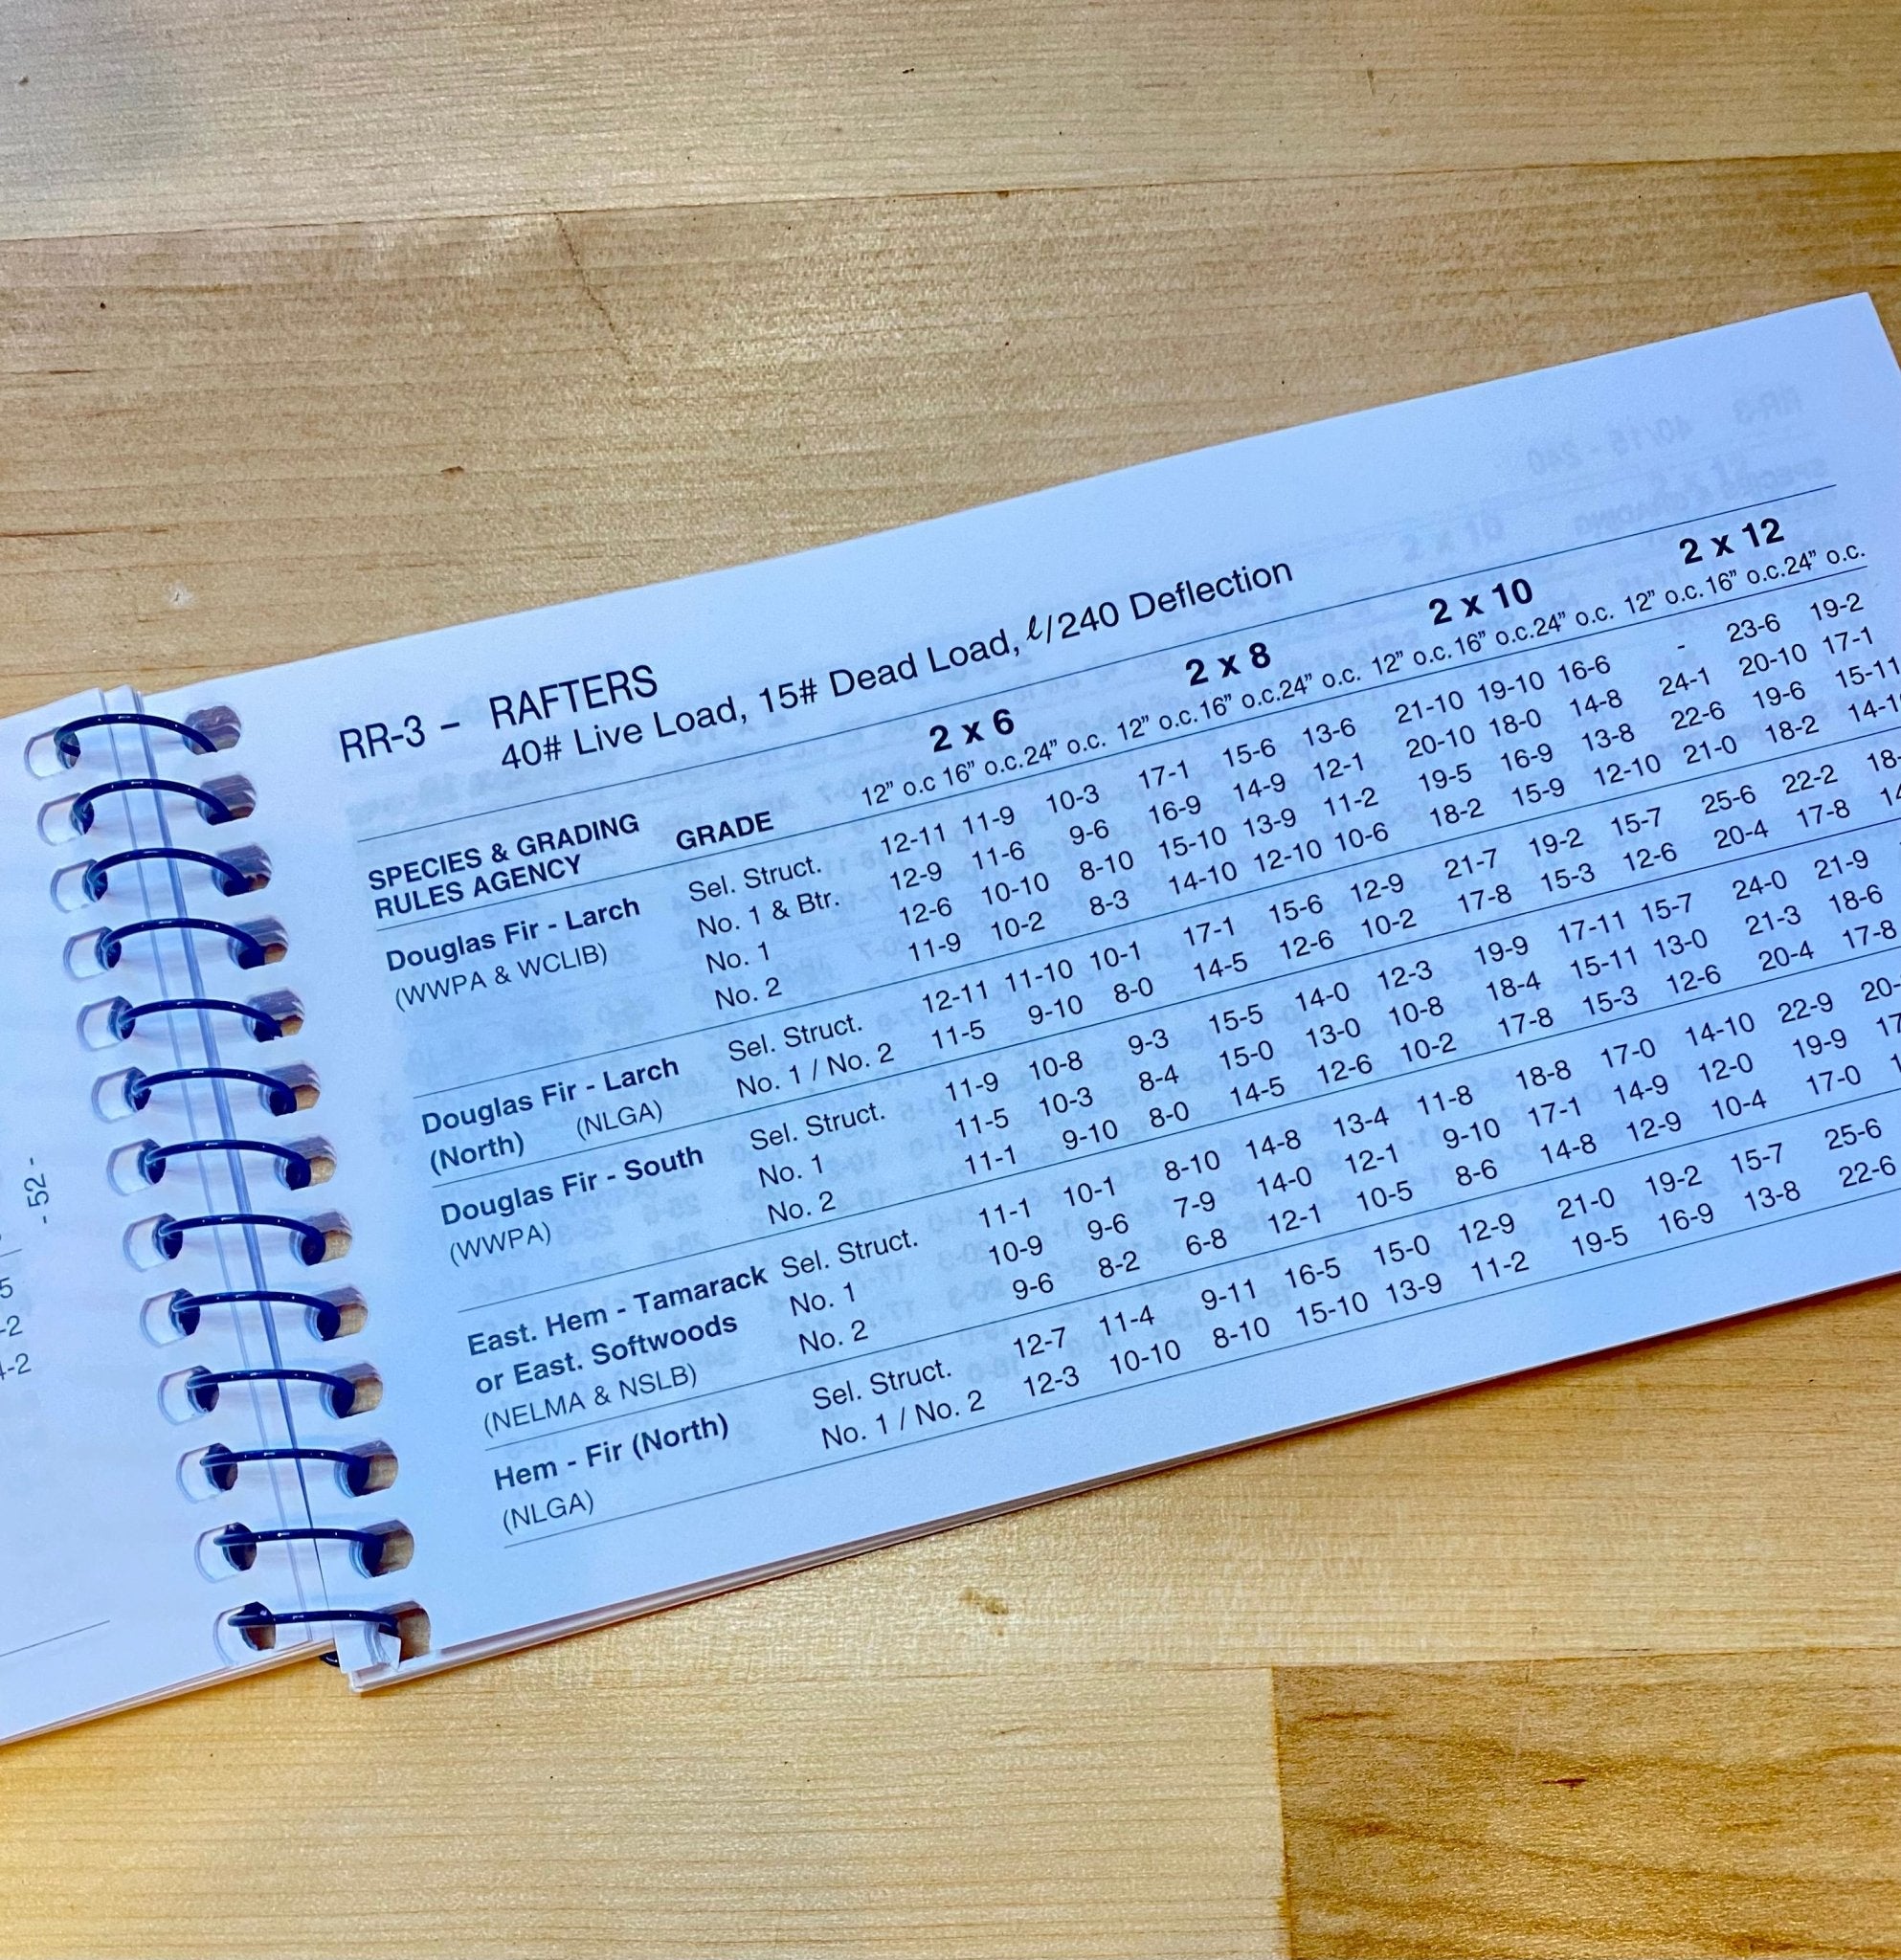 - 52 -
5
-2
-2
RR-3 – RAFTERS
40# Live Load, 15# Dead Load, ℓ/240 Deflection
2 x 6 2 x 8 2 x 10 2 x 12
SPECIES & GRADING GRADE 12” o.c 16” o.c.24” o.c. 12” o.c.16” o.c.24” o.c. 12” o.c.16” o.c.24” o.c. 12” o.c.16” o.c.24” o.c.
RULES AGENCY
Douglas Fir - Larch Sel. Struct. 12-11 11-9 10-3 17-1 15-6 13-6 21-10 19-10 16-6 - 23-6 19-2
(WWPA & WCLIB) No. 1 & Btr. 12-9 11-6 9-6 16-9 14-9 12-1 20-10 18-0 14-8 24-1 20-10 17-1
No. 1 12-6 10-10 8-10 15-10 13-9 11-2 19-5 16-9 13-8 22-6 19-6 15-11
No. 2 11-9 10-2 8-3 14-10 12-10 10-6 18-2 15-9 12-10 21-0 18-2 14-1
Douglas Fir - Larch Sel. Struct. 12-11 11-10 10-1 17-1 15-6 12-9 21-7 19-2 15-7 25-6 22-2 18-
(North) (NLGA) No. 1 / No. 2 11-5 9-10 8-0 14-5 12-6 10-2 17-8 15-3 12-6 20-4 17-8 14
Douglas Fir - South Sel. Struct. 11-9 10-8 9-3 15-5 14-0 12-3 19-9 17-11 15-7 24-0 21-9
(WWPA) No. 1 11-5 10-3 8-4 15-0 13-0 10-8 18-4 15-11 13-0 21-3 18-6
No. 2 11-1 9-10 8-0 14-5 12-6 10-2 17-8 15-3 12-6 20-4 17-8
East. Hem - Tamarack Sel. Struct. 11-1 10-1 8-10 14-8 13-4 11-8 18-8 17-0 14-10 22-9 20-
or East. Softwoods No. 1 10-9 9-6 7-9 14-0 12-1 9-10 17-1 14-9 12-0 19-9 17
(NELMA & NSLB) No. 2 9-6 8-2 6-8 12-1 10-5 8-6 14-8 12-9 10-4 17-0
Hem - Fir (North) Sel. Struct. 12-7 11-4 9-11 16-5 15-0 12-9 21-0 19-2 15-7 25-6
(NLGA) No. 1 / No. 2 12-3 10-10 8-10 15-10 13-9 11-2 19-5 16-9 13-8 22-6